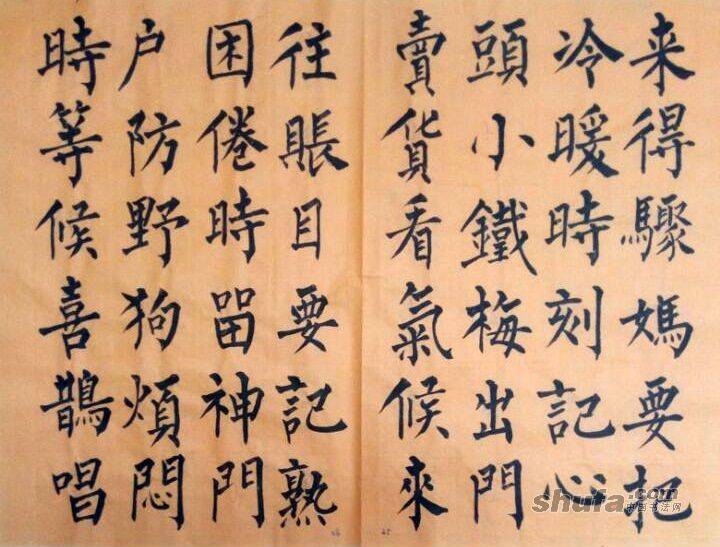 来得驟媽要把
冷暖時刻記心
頭小鐵梅出門
賣貨看氣候來
往賬目要記熟
困倦時留神門
户防野狗煩悶
時等候喜鵲唱
shufa.com
中国书法网